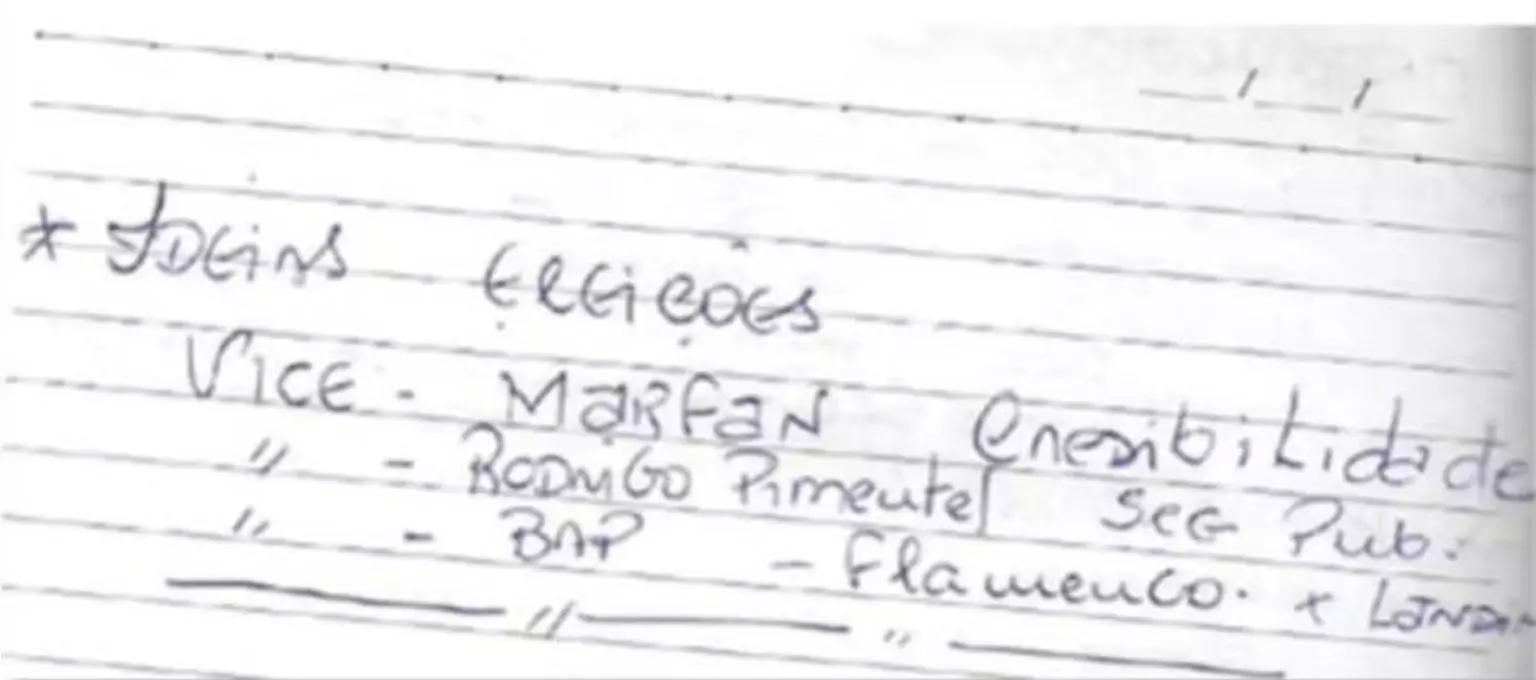 / /
* IDEiAS ELEiÇÕES
VICE - MARFAN Credibilidade
" - RODRIGO Pimentel SEG Pub.
" - BAP - Flamengo. x
" "